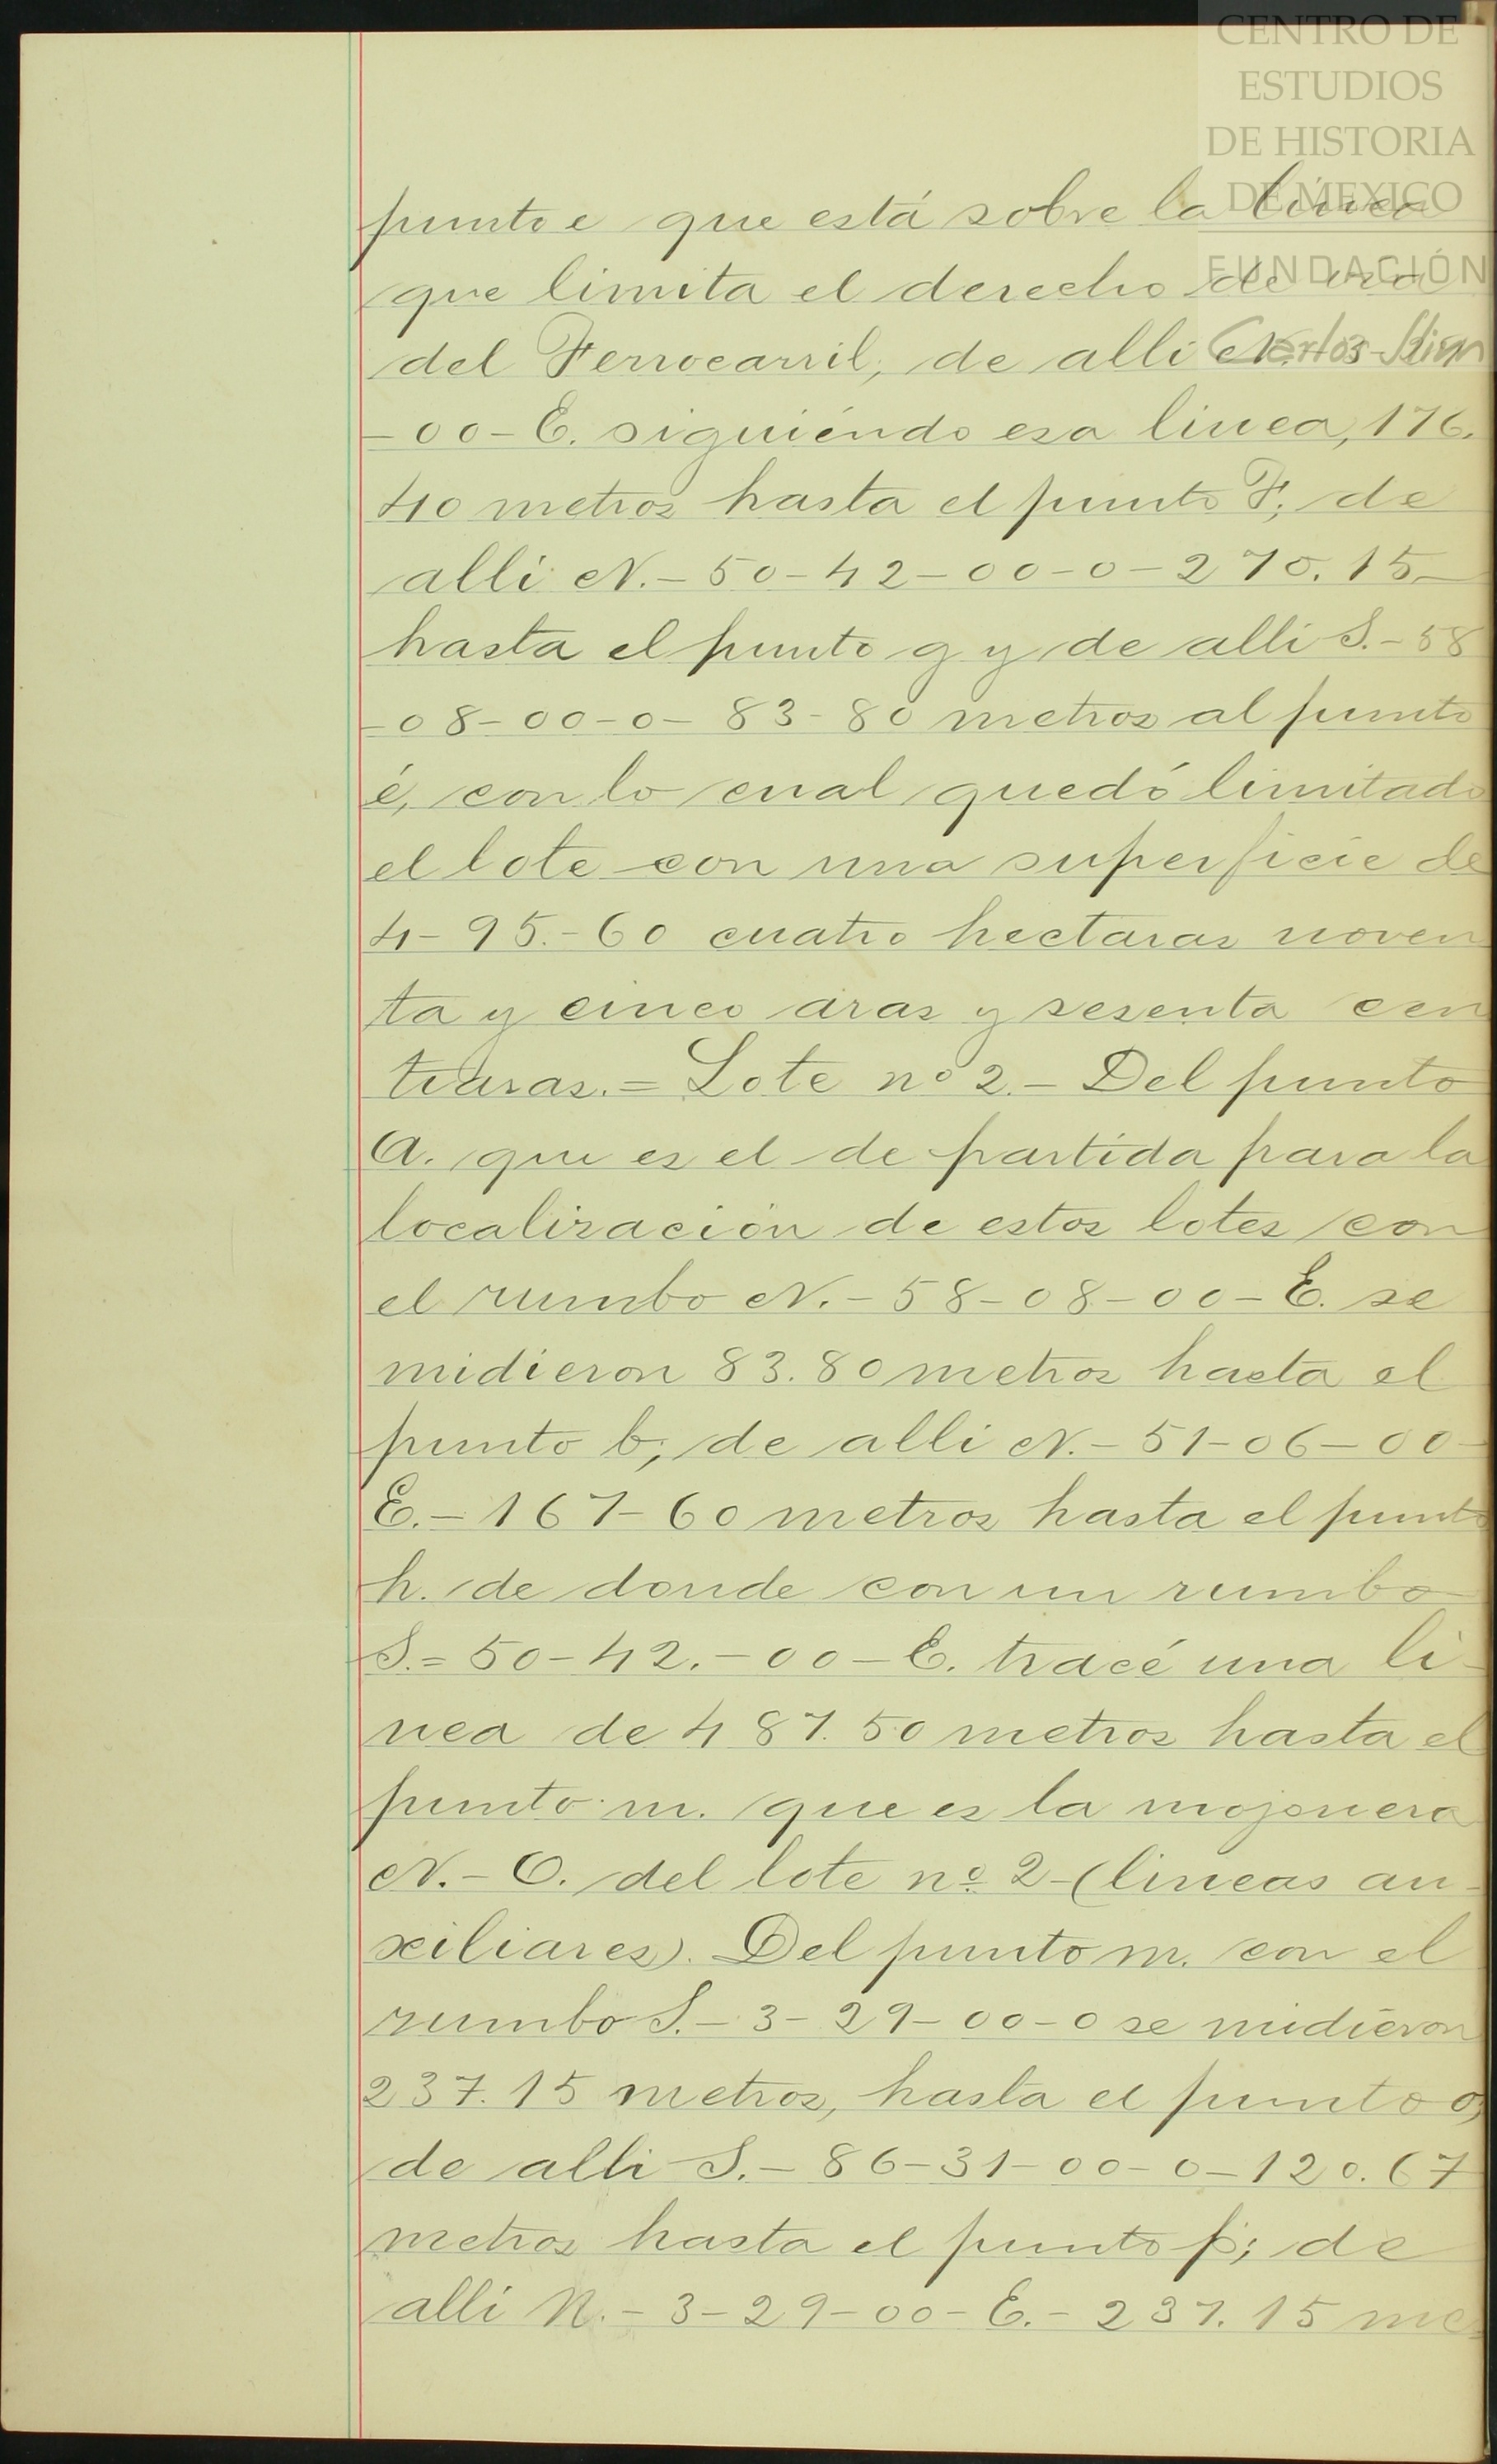 CENTRO DE
ESTUDIOS
DE HISTORIA
DE MEXICO
FUNDACIÓN
Carlos Slim
punto e que está sobre la línea
que limita el derecho de via
del Ferrocarril, de alli N. 3-29
-00-E. siguiéndo esa linea, 176.
40 metros hasta el punto F; de
alli N.-50-42-00-0-270.15-
hasta el punto g y de alli S.-58
-08-00-0-83-80 metros al punto
é, con lo cual quedó limitado
el lote con una superficie de
4-95.-60 cuatro hectaras noven
ta y cinco aras y sesenta cen
tiaras.= Lote nº 2.- Del punto
A. que es el de partida para la
localización de estos lotes con
el rumbo N.-58-08-00-E. se
midieron 83.80 metros hasta el
punto b; de alli N.-51-06-00-
E.-167-60 metros hasta el punto
h. de donde con un rumbo
S.=50-42.-00-E. tracé una li-
nea de 487.50 metros hasta el
punto m. que es la mojonera
N.-O. del lote nº 2-(lineas au-
xiliares). Del punto m. con el
rumbo S.-3-29-00-0 se midieron
237.15 metros, hasta el punto o;
de alli S.-86-31-00-0-120.67
metros hasta el punto p; de
alli N.-3-29-00-E.-237.15 me-